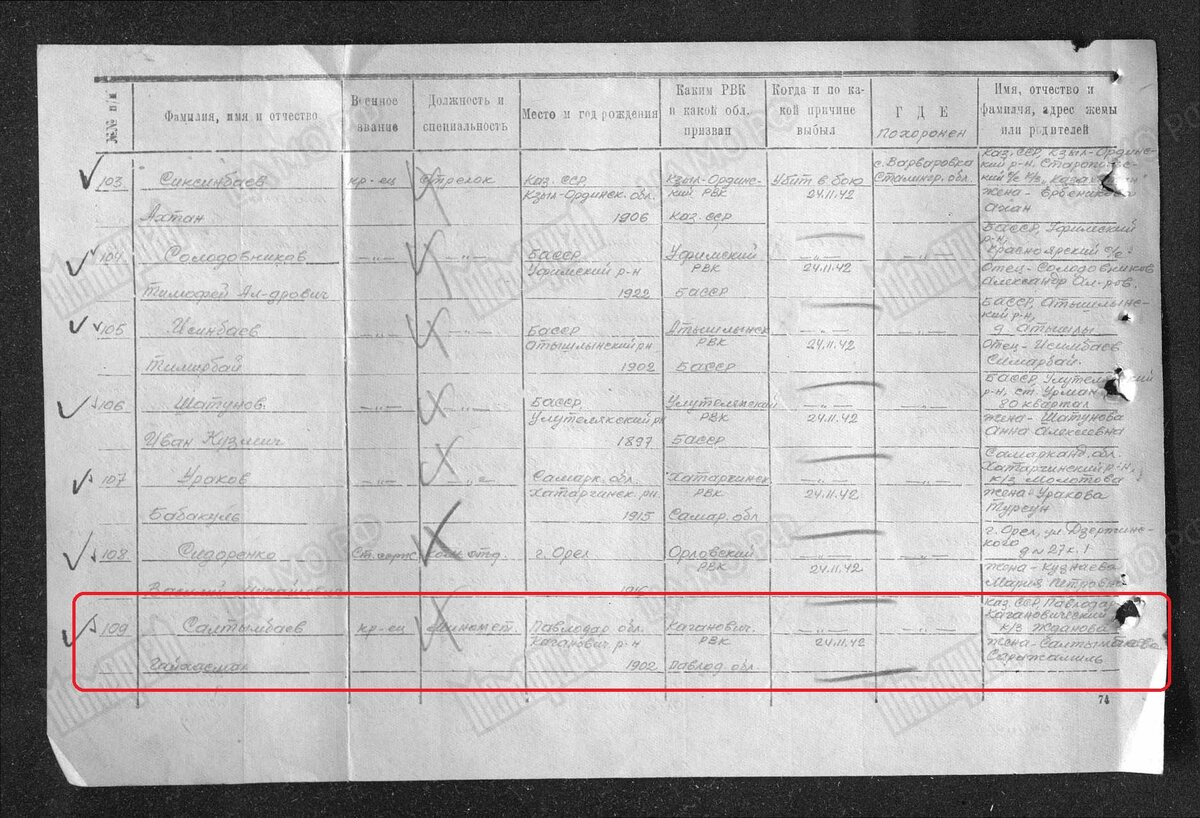 №№ п/п
Фамилия, имя и отчество
Военное звание
Должность и специальность
Место и год рождения
Каким РВК и какой обл. призван
Когда и по какой причине выбыл
ГДЕ похоронен
Имя, отчество и фамилия, адрес жены или родителей
103 Сиксинбаев кр-ец Стрелок Каз. ССР Кзыл-Ординск. обл. Кзыл-Ординский РВК Убит в бою 24.11.42 с. Варваровка Сталингр. обл. Каз. ССР, Кзыл-Ординский р-н,
Ахтан 1906 Каз. ССР жена -
104 Солодовников —„— —„— БАССР Уфимский р-н Уфимский РВК —„— 24.11.42 —„— БАССР, Уфимский р-н, Красноярский с/с
Тимофей Ал-дрович 1922 БАССР Отец - Солодовников Александр Ал-ров.
105 Исинбаев —„— —„— БАССР Атышлынский р-н Атышлынск РВК —„— 24.11.42 —„— БАССР, Атышлынский р-н, д. Атышлы
Тимирбай 1902 БАССР Отец - Исимбаев Симарбай.
106 Шатунов —„— —„— БАССР Улутелякский р-н Улутелякский РВК —„— 24.11.42 —„— БАССР, Улутелякский р-н, ст. Урман 80 квартал
Иван Кузмич 1897 БАССР жена - Шатунова Анна Алексеевна
107 Ураков —„— —„— Самарк. обл. Хатарчинск. рн. Хатарчинск РВК —„— 24.11.42 —„— Самарканд. обл. Хатарчинский р-н, к/з Молотова
Бабакуль 1915 Самар. обл жена - Уракова Турсун
108 Сидоренко Ст. серж. ком. отд. г. Орел Орловский РВК —„— 24.11.42 —„— г. Орел, ул Дзержинского д № 27 к. 1
Василий Михайлович 1916 жена - Кузнаева Мария Петровна
109 Салтымбаев кр- Миномет. Павлодар обл. Каганович. р-н Каганович. РВК —„— 24.11.42 —„— Каз. ССР, Павлодар Кагановический к/з Жданова
1902 Павлод. обл. жена - Салтымбаева
74